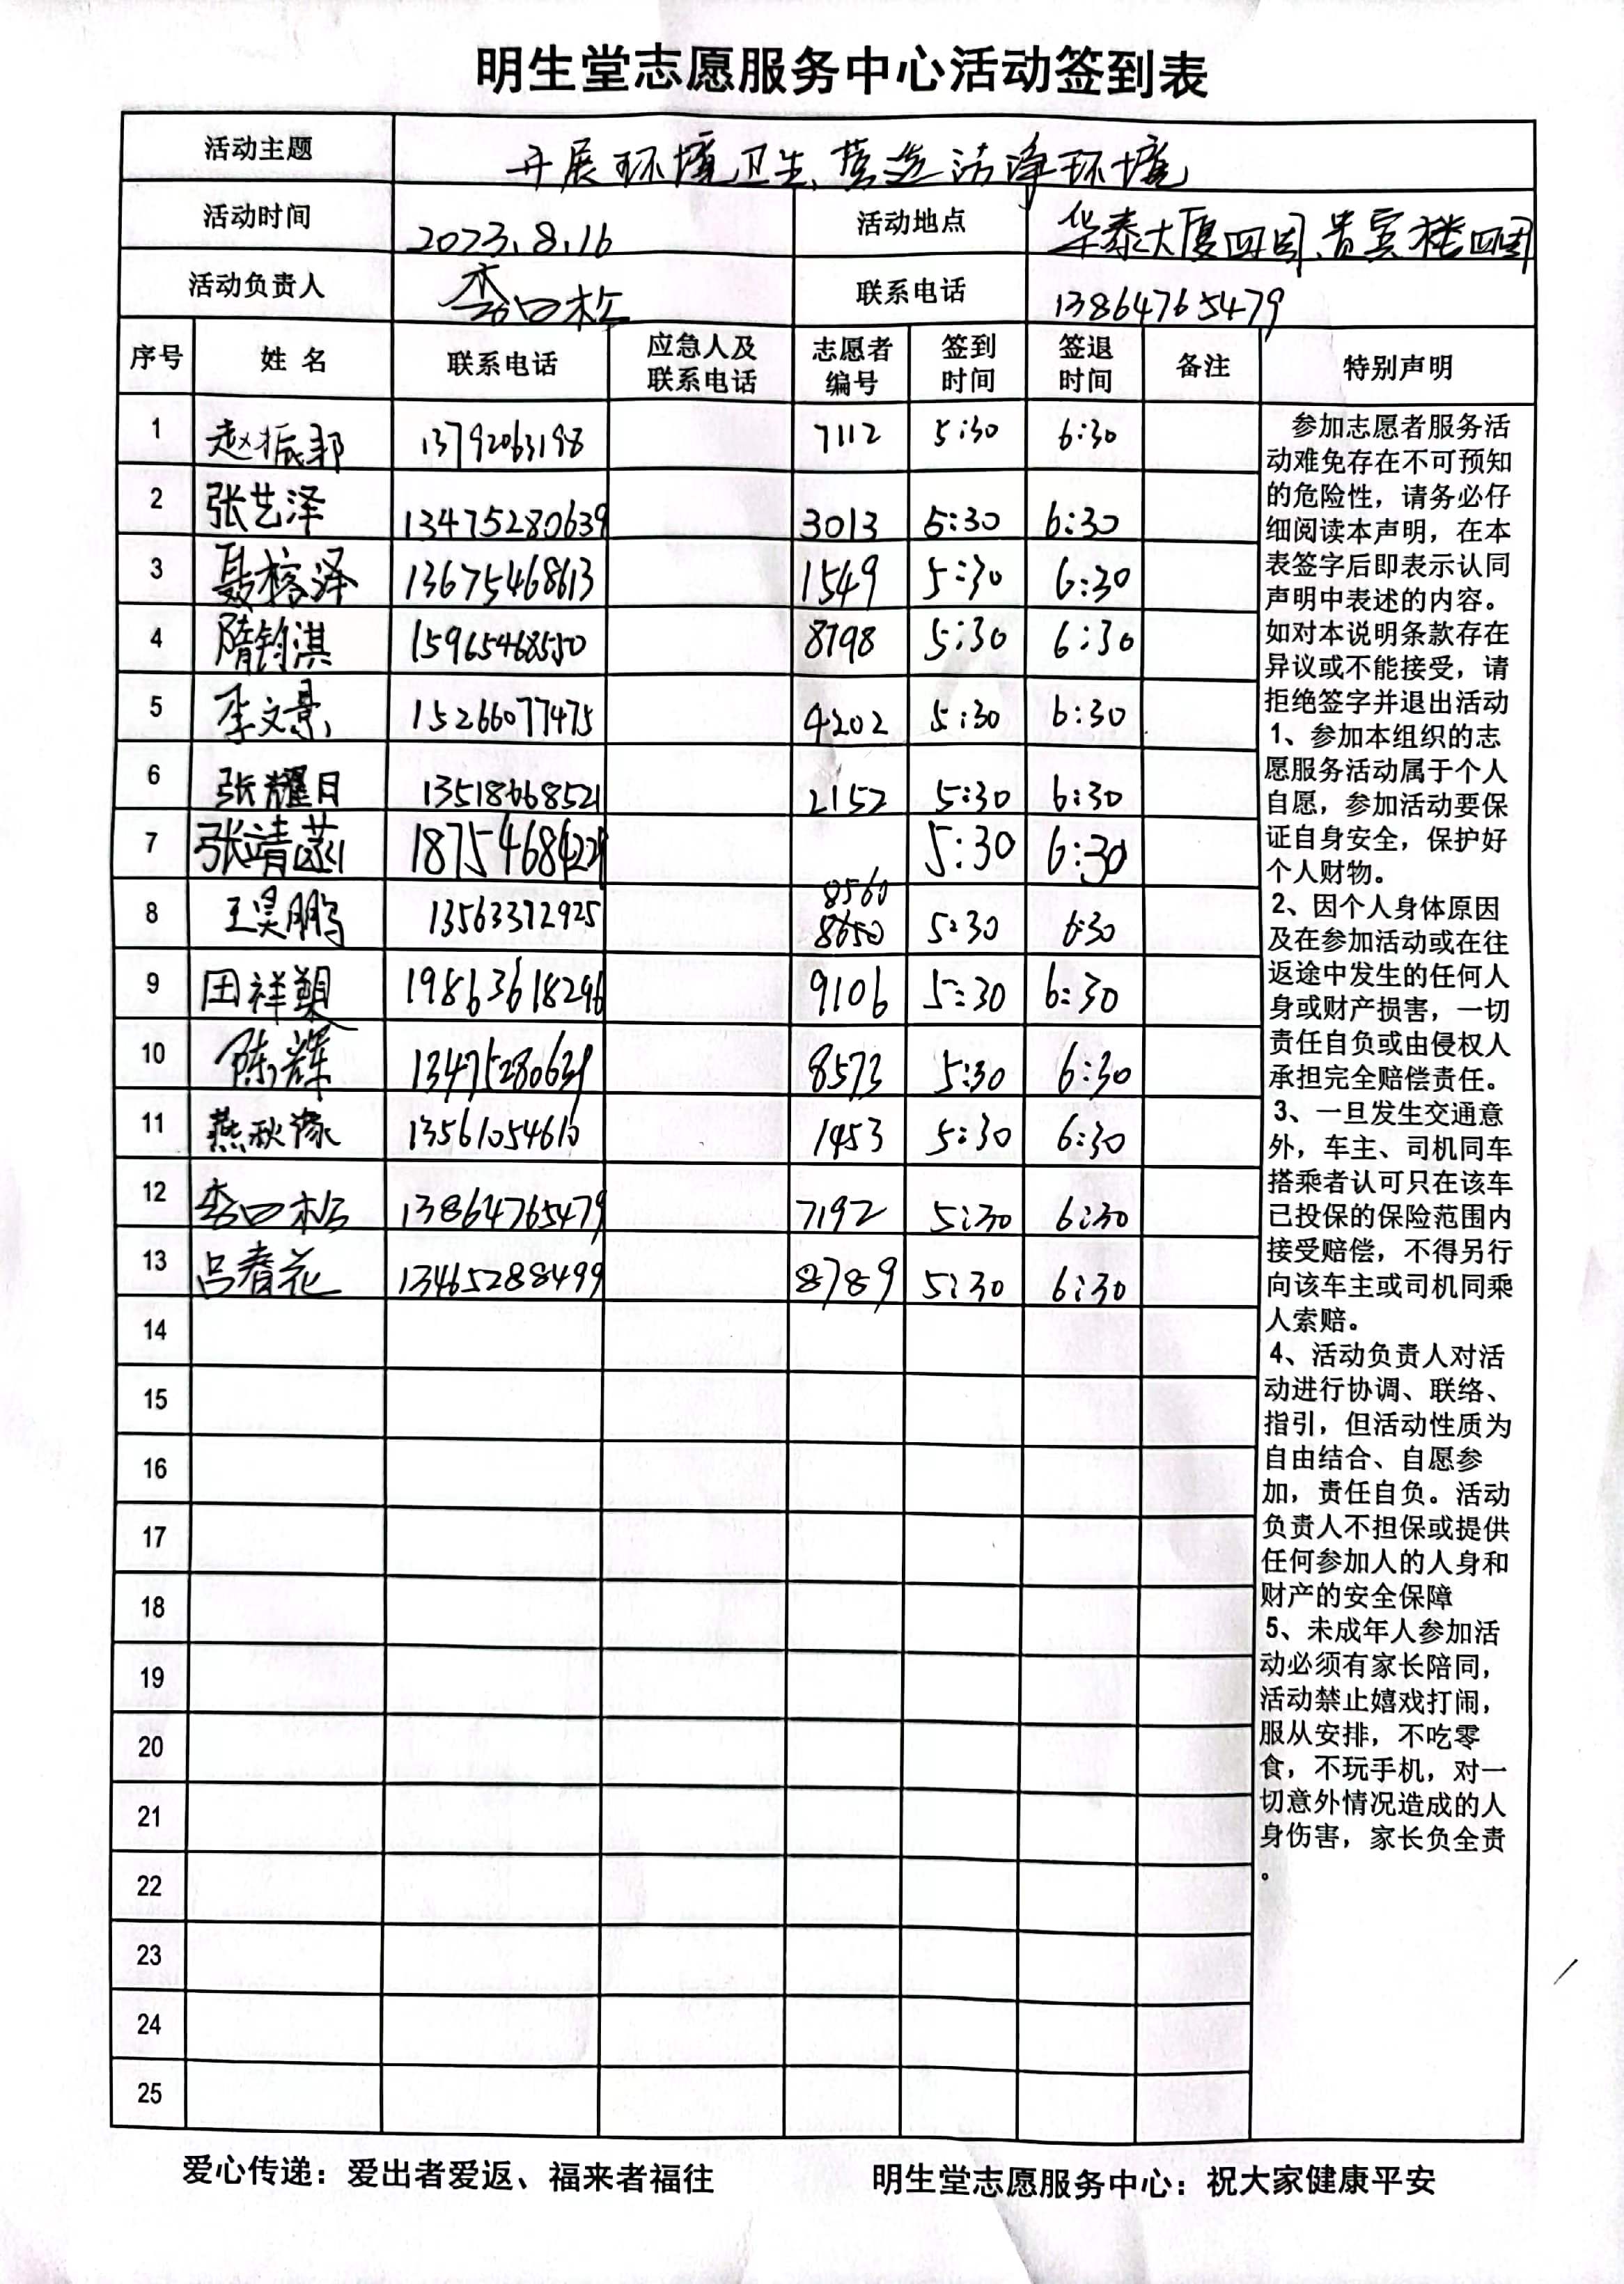 明生堂志愿服务中心活动签到表
活动主题 开展环境卫生、营造洁净环境
活动时间 2023.8.16 活动地点 华泰大厦四周、贵宾楼四周
活动负责人 李口松 联系电话 13864765479
序号 姓名 联系电话 应急人及联系电话 志愿者编号 签到时间 签退时间 备注 特别声明
1 赵振邦 13792063198 7112 5:30 6:30
2 张艺泽 13475280639 3013 5:30 6:30
3 聂榕泽 13675468613 1549 5:30 6:30
4 隋钧淇 15965468550 8798 5:30 6:30
5 李文景 15266077475 4202 5:30 6:30
6 张耀日 13518668521 2152 5:30 6:30
7 张靖 5:30 6:30
8560
8 王昊鹏 13563372925 8650 5:30 6:30
9 田祥 19863618296 9106 5:30 6:30
10 陈辉 13475280639 8573 5:30 6:30
11 燕秋 13561054610 1453 5:30 6:30
12 李口松 13864765479 7192 5:30 6:30
13 吕春花 13465288499 8789 5:30 6:30
14
15
16
17
18
19
20
21
22
23
24
25
参加志愿者服务活
动难免存在不可预知
的危险性，请务必仔
细阅读本声明，在本
表签字后即表示认同
声明中表述的内容。
如对本说明条款存在
异议或不能接受，请
拒绝签字并退出活动
1、参加本组织的志
愿服务活动属于个人
自愿，参加活动要保
证自身安全，保护好
个人财物。
2、因个人身体原因
及在参加活动或在往
返途中发生的任何人
身或财产损害，一切
责任自负或由侵权人
承担完全赔偿责任。
3、一旦发生交通意
外，车主、司机同车
搭乘者认可只在该车
已投保的保险范围内
接受赔偿，不得另行
向该车主或司机同乘
人索赔。
4、活动负责人对活
动进行协调、联络、
指引，但活动性质为
自由结合、自愿参
加，责任自负。活动
负责人不担保或提供
任何参加人的人身和
财产的安全保障
5、未成年人参加活
动必须有家长陪同，
活动禁止嬉戏打闹，
服从安排，不吃零
食，不玩手机，对一
切意外情况造成的人
身伤害，家长负全责
。
爱心传递：爱出者爱返、福来者福往 明生堂志愿服务中心：祝大家健康平安